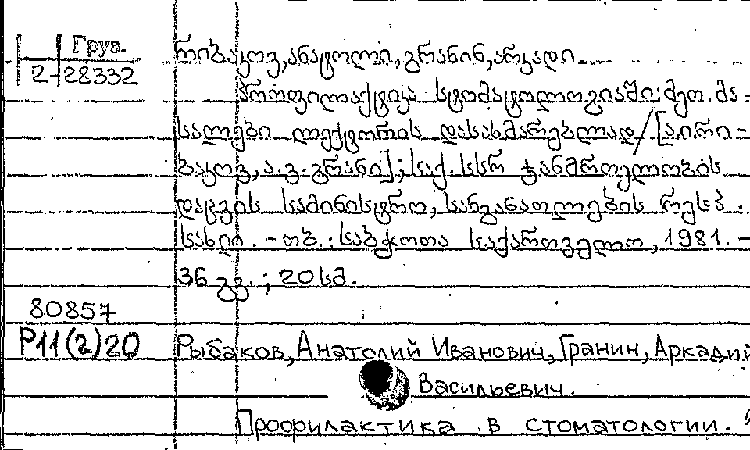 Груз.
2-28332
რიბაკოვ, ანატოლი, გრანინ, არკადი.
პროფილაქტიკა სტომატოლოგიაში: მეთ. მა-
სალები ლექტორის დასახმარებლად / [ა. ი. რი-
ბაკოვ, ა. ვ. გრანინ]; საქ. სსრ ჯანმრთელობის
დაცვის სამინისტრო, სანგანათლების რესპ.
სახლი. - თბ.: საბჭოთა საქართველო, 1981. -
36 გვ.; 20 სმ.
80857
Р11(2)20
Рыбаков, Анатолий Иванович, Гранин, Аркадий
Васильевич.
Профилактика в стоматологии.